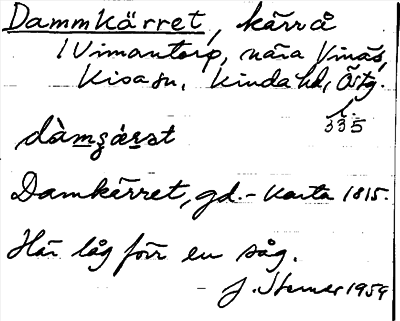 Dammkärret, kärr å
Vimantorp, nära Vinäs,
Kisa sn, Kinda hd, Östg.
335
dàmʒæ̱ṟət
Damkärret, gd. - Karta 1815.
Här låg förr en såg.
J. Sterner 1959